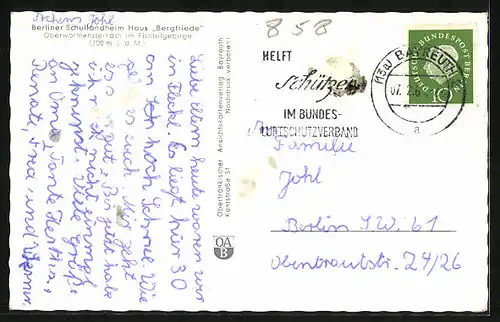 858
Berliner Schullandheim Haus „Bergfriede"
Oberwarmensteinach im Fichtelgebirge
(700 m ü. d. M.)
Liebe Eltern heute waren wir
Es liegt hier 30
cm hoch Schnee Wie
geht es euch. Mir geht
es gut
ich noch nicht einmal
Viele Grüße
an Oma, Tante Hertha,
Renate, und Werner
Oberfränkischer Ansichtskartenverlag Bayreuth
Kantstraße 51 Nachdruck verboten!
OA
B
HELFT
schützen
IM BUNDES-
LUFTSCHUTZVERBAND
(13a) BAYREUTH
a
DEUTSCHE BUNDESPOST BERLIN
10
Familie
Johl
Berlin S.W. 61
Obentrautstr. 24/26